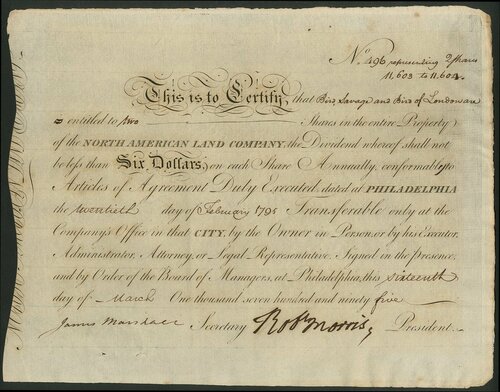 No. 496 representing 2 Shares
11.603 to 11.604
This is to Certify, that Bird, Savage and Bird of London are
entitled to two Shares in the entire Property
of the NORTH AMERICAN LAND COMPANY, the Dividend whereof shall not
be less than Six Dollars, on each Share Annually, conformably to
Articles of Agreement Duly Executed, dated at PHILADELPHIA
the twentieth day of February 1795 Transferable only at the
Company's Office in that CITY, by the Owner in Person, or by his Executor,
Administrator, Attorney, or Legal Representative. Signed in the presence
and by Order of the Board of Managers, at Philadelphia, this sixteenth
day of March One thousand seven hundred and ninety five
James Marshall Secretary Robt Morris, President.